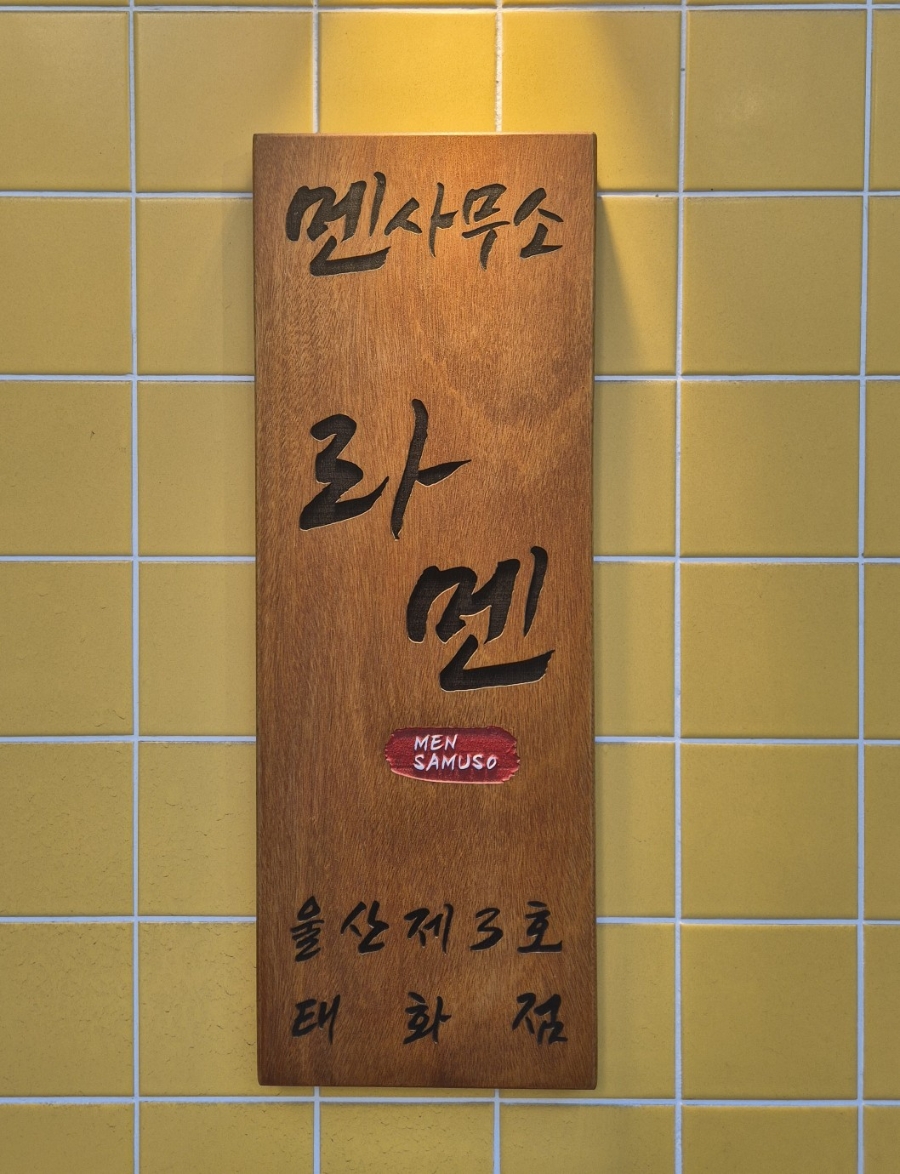 멘사무소
라
멘
MEN
SAMUSO
울산제3호
태화점